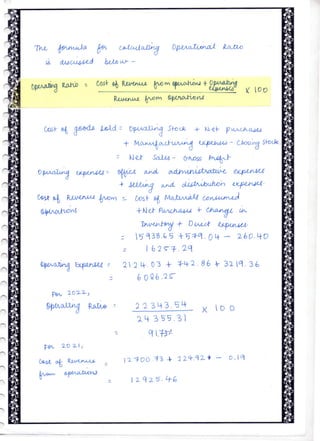 The formula for calculating Operational Ratio
is discussed below -
Operating Ratio = Cost of Revenue from operations + Operating expenses X 100
Revenue from Operations
Cost of goods sold = Operating Stock + Net purchases
+ Manufacturing expenses - Closing Stock
= Net Sales - Gross Profit
Operating expenses = office and administrative expenses
+ selling and distribution expenses
Cost of Revenue from = Cost of Materials consumed
operations + Net Purchases + Change in
Inventory + Direct expenses
= 15938.65 + 579.04 - 260.40
= 16257.29
Operating Expenses = 2124.03 + 742.86 + 3219.36
= 6086.25
For 2022,
Operating Ratio = 22343.54 X 100
24355.31
=
For 2021,
Cost of Revenue = 12700.73 + 224.92 - 0.19
from operations
= 12925.46